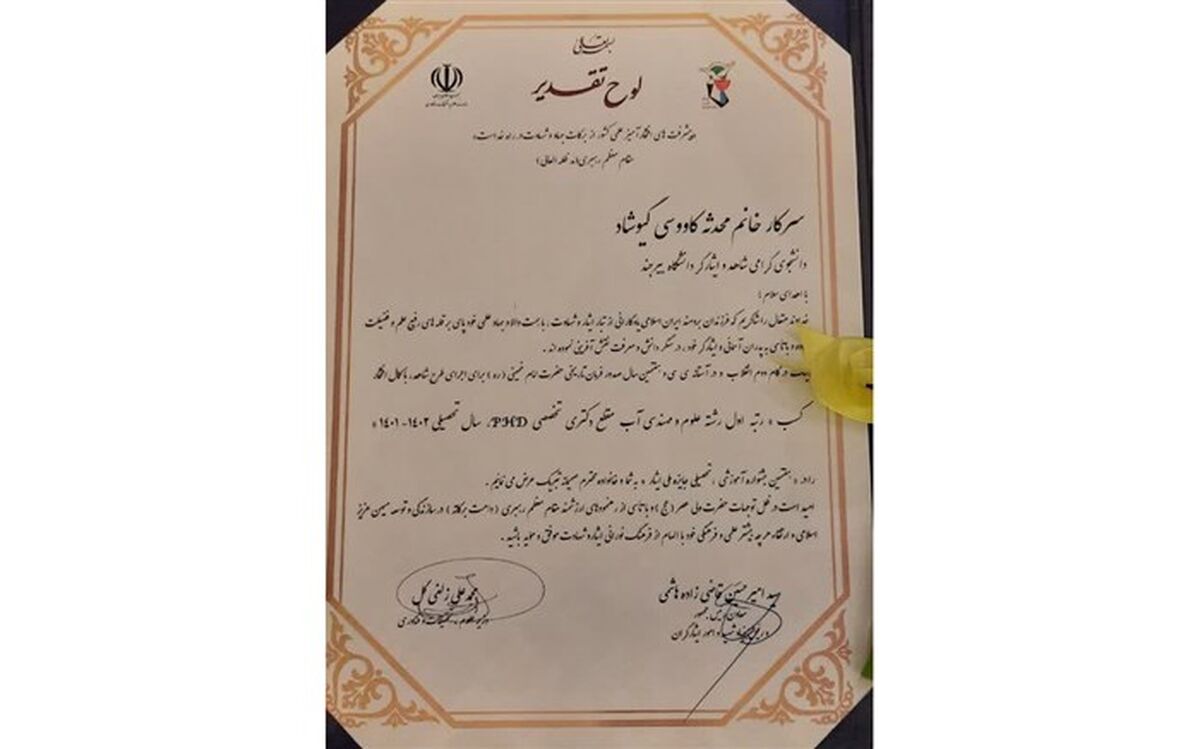 بسمه تعالی
لوح تقدیر
«پیشرفت های افتخارآمیز علمی کشور از برکات جهاد و شهادت در راه خداست»
مقام معظم رهبری (مد ظله العالی)
سرکار خانم محدثه کاووسی گیوشاد
دانشجوی گرامی شاهد و ایثارگر دانشگاه بیرجند
با اهدای سلام ؛
خداوند متعال را شاکریم که فرزندان برومند ایران اسلامی یادگارانی از تبار ایثار و شهادت ، با همت والا و جهاد علمی خود پای بر قله های رفیع علم و فضیلت
و با تاسی به پدران آسمانی و ایثارگر خود ، در سنگر دانش و معرفت نقش آفرینی نموده اند .
در گام دوم انقلاب و در آستانه سی و هفتمین سال صدور فرمان تاریخی حضرت امام خمینی (ره) برای اجرای طرح شاهد، با کمال افتخار
کسب « رتبه اول رشته علوم و مهندسی آب مقطع دکتری تخصصی PHD، سال تحصیلی ۱۴۰۲-۱۴۰۱ »
را در « هفتمین جشنواره آموزشی ، تحصیلی جایزه ملی ایثار » به شما و خانواده محترم صمیمانه تبریک عرض می نمایم .
امید است در ظل توجهات حضرت ولی عصر (عج) و با تاسی از رهنمودهای ارزشمند مقام معظم رهبری (دامت برکاته) در سازندگی و توسعه میهن عزیز
اسلامی و ارتقاء هر چه بیشتر علمی و فرهنگی خود با الهام از فرهنگ نورانی ایثار و شهادت موفق و موید باشید .
سید امیر حسین قاضی زاده هاشمی
معاون رئیس جمهور
و رئیس بنیاد شهید و امور ایثارگران
محمد علی زلفی گل
وزیر علوم، تحقیقات و فناوری